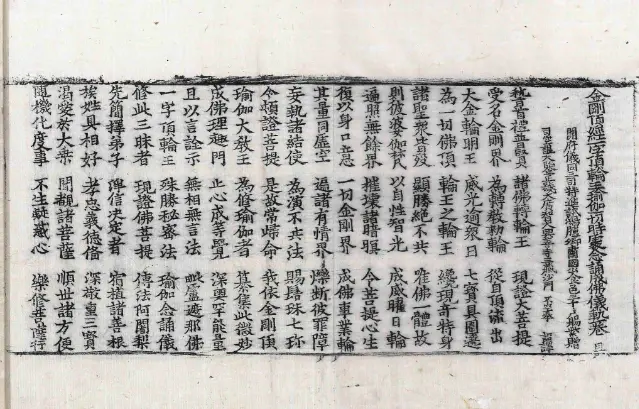 金剛頂經一字頂輪王瑜伽一切時處念誦成佛儀軌一卷 且
開府儀同三司特進試鴻臚卿肅國公食邑三千戶賜紫贈
司空謚大鑒正號大廣智大興善寺三藏沙門不空奉 詔譯
稽首禮普賢 諸佛轉輪王 現證大菩提
受名金剛界 為轉教勑輪 從自頂流出
大金輪明王 威光逾衆日 七寶具圍遶
為一切佛頂 輪王之輪王 纔現奇特身
諸聖衆皆沒 顯勝絕不共 唯佛一體故
則彼婆伽梵 以自性智光 成威曜日輪
遍照無餘界 摧壞諸瞙暝 令菩提心生
復以身口意 一切金剛界 成佛事業輪
其量同虛空 遍諸有情界 爍斷彼罪障
妄執諸結使 為演不共法 賜髻珠七珎
令頓證菩提 是故常歸命 我依金剛頂
瑜伽大教王 為修瑜伽者 纂集此微妙
成佛理趣門 止心成等覺 深奧罕能量
且以言詮示 無相無言法 毗盧遮那佛
一字頂輪王 殊勝秘密法 瑜伽念誦儀
修此三昧者 現證佛菩提 傳法阿闍梨
先簡擇弟子 淨信決定者 宿植諸善根
族姓具相好 孝忠義德備 深敬重三寶
渴愛於大乘 開觀諸菩薩 順世諸方便
隨機化度事 不生疑惑心 樂修菩薩行